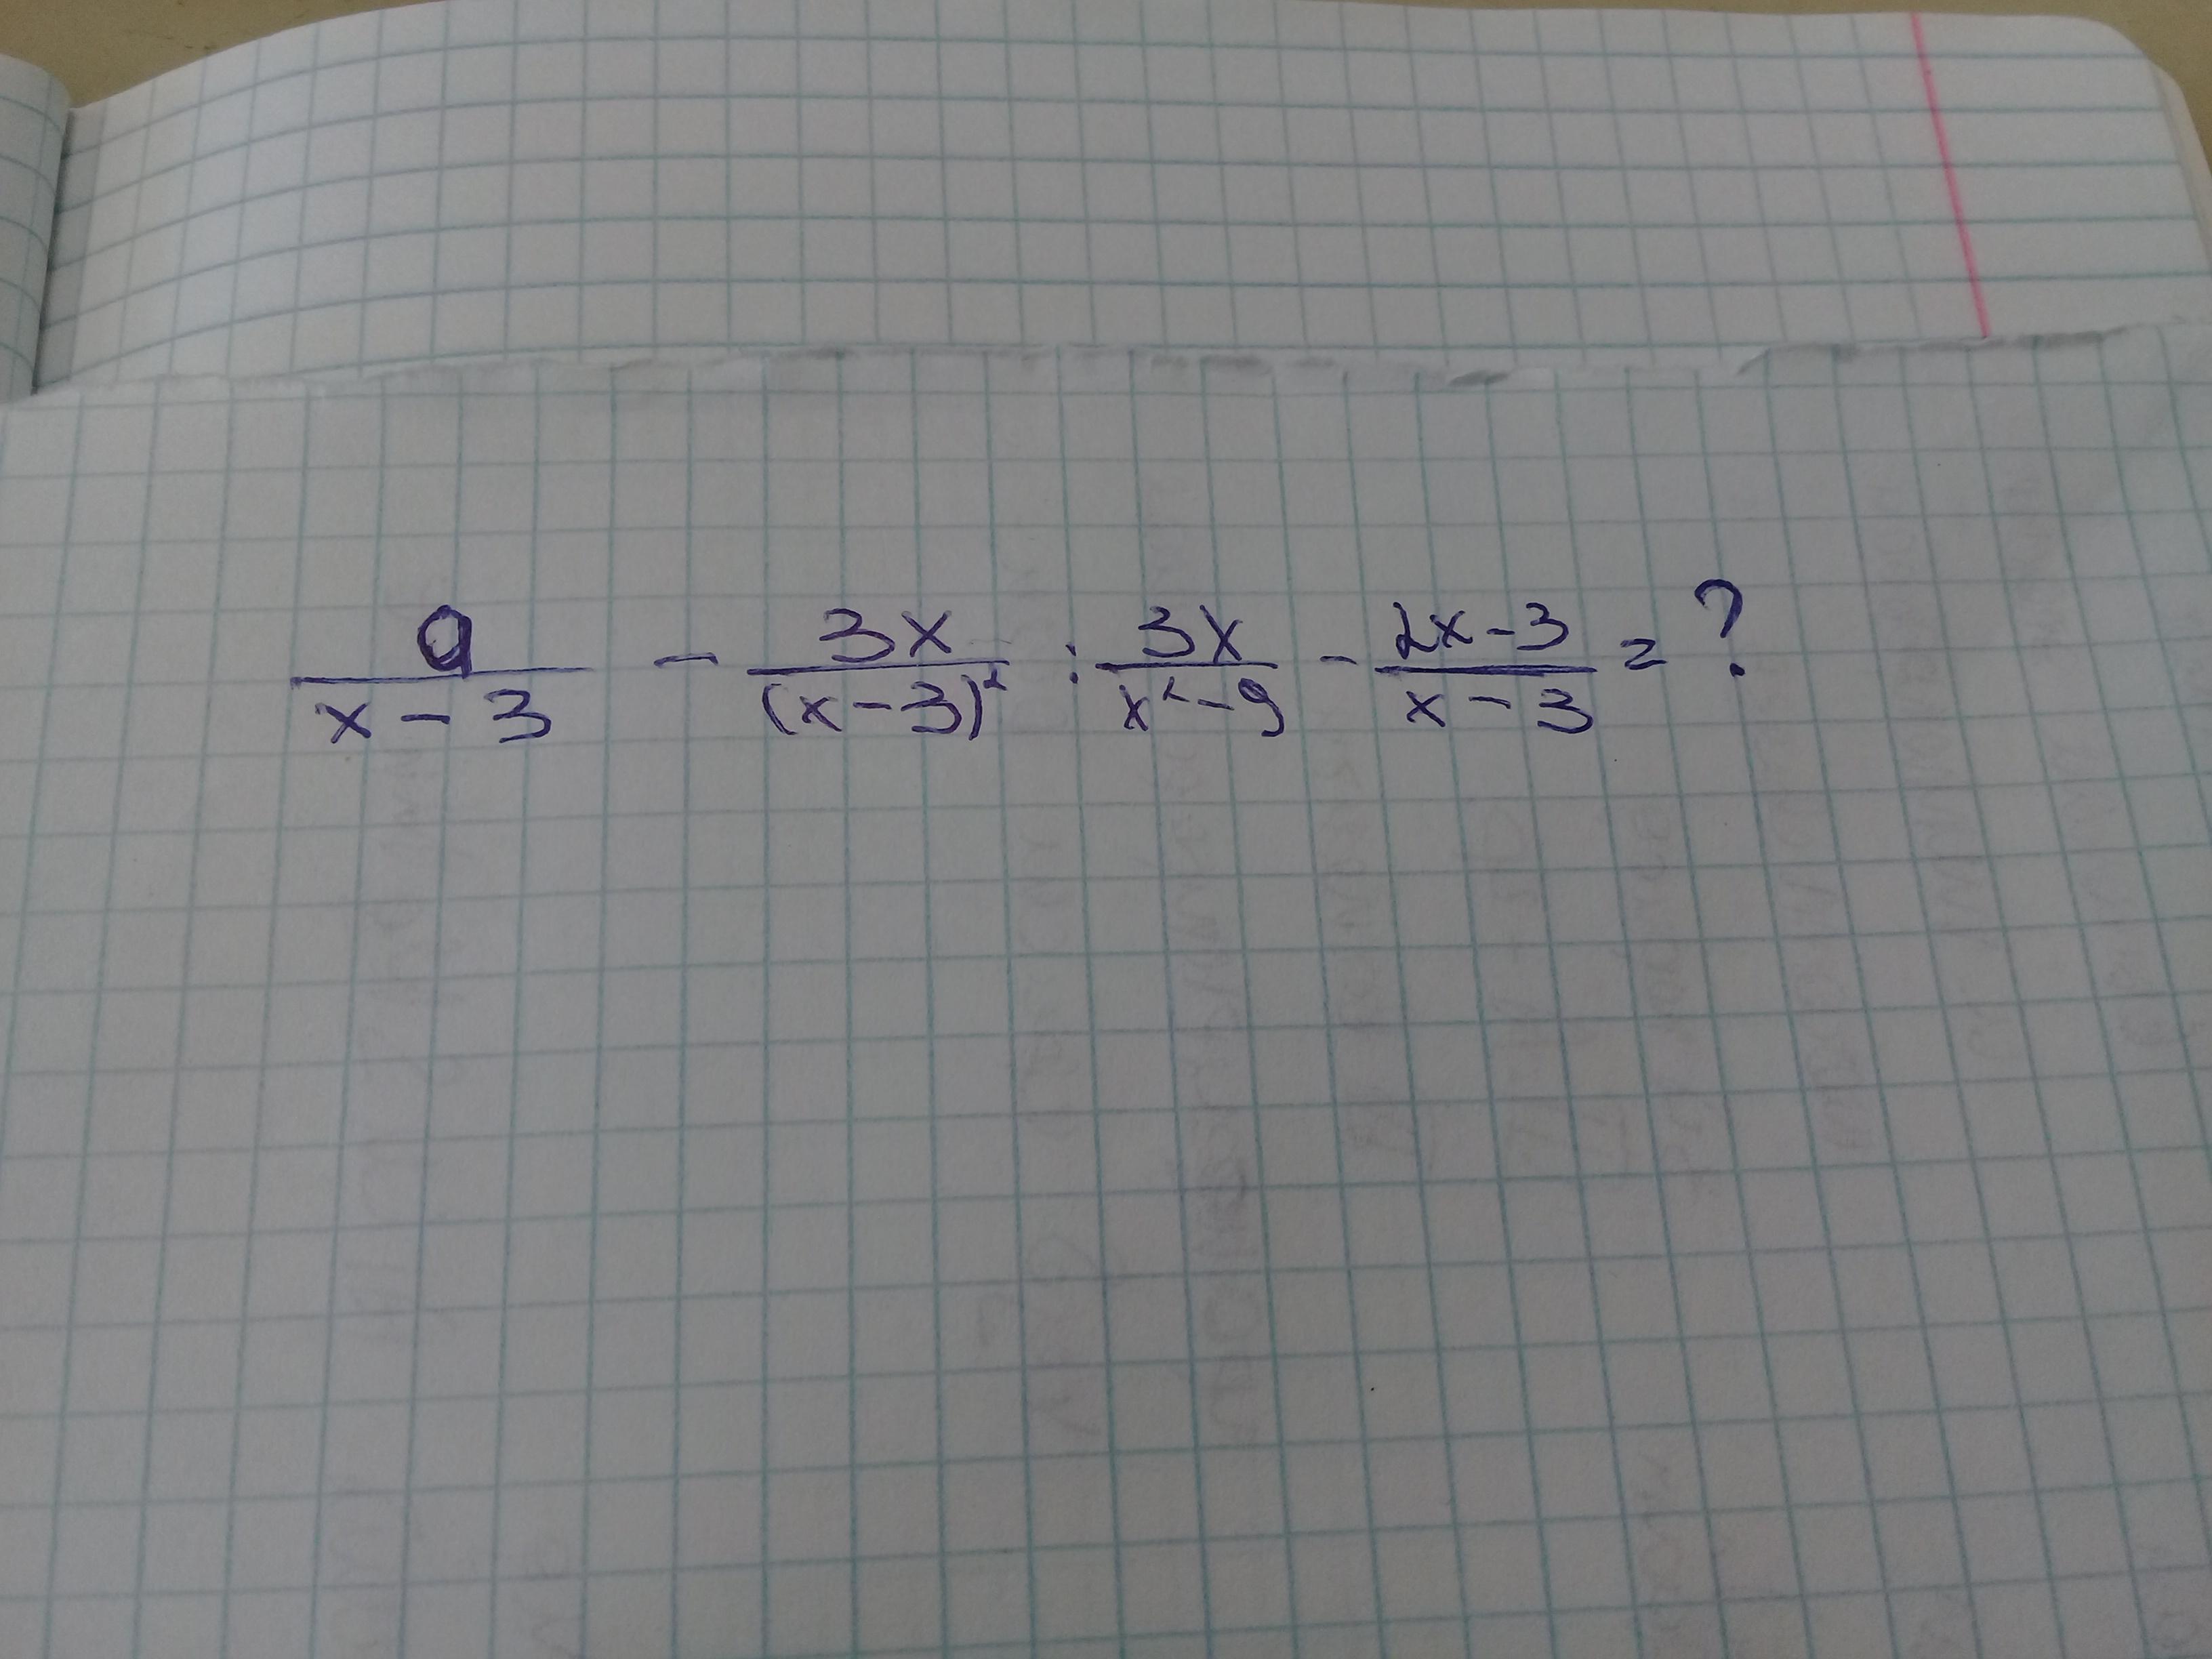 9/(x-3) - 3x/(x-3)² : 3x/(x²-9) - (2x-3)/(x-3) = ?